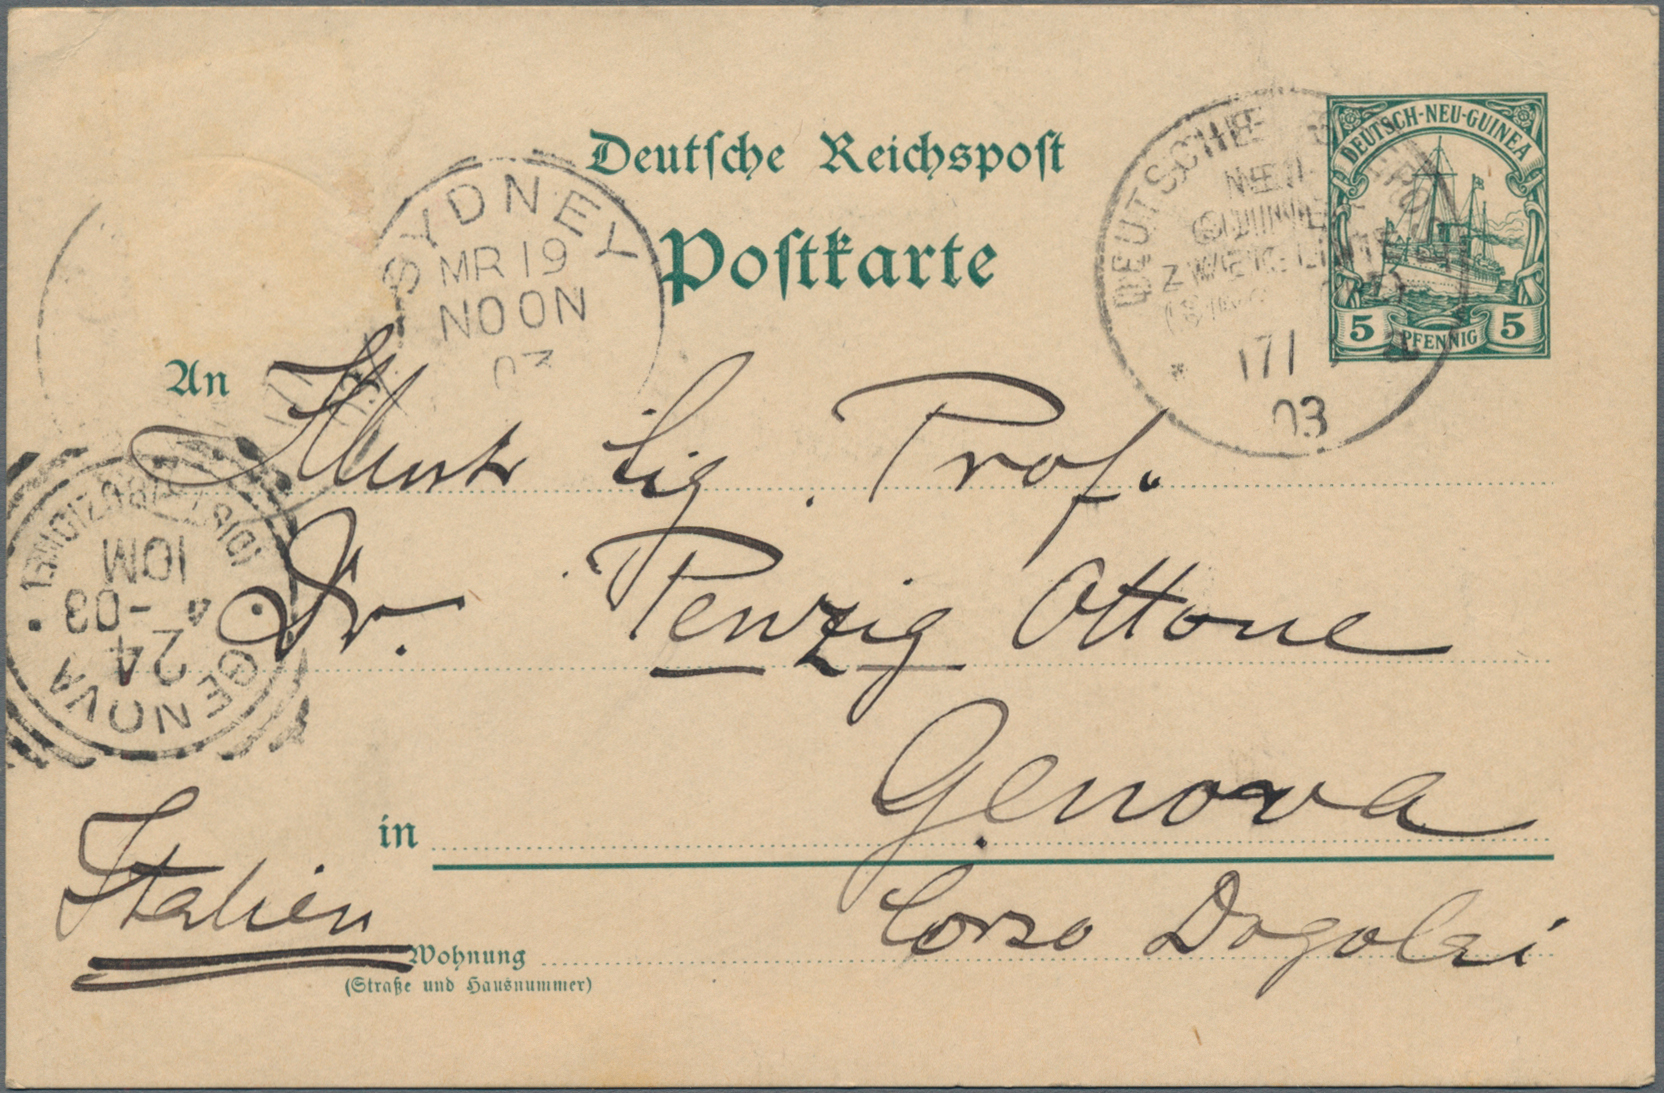 Deutsche Reichspost
Postkarte
DEUTSCH-NEU-GUINEA
5 PFENNIG 5
DEUTSCHE
NEU-
GUINEA
ZWEIGLINIE
17/
03
SYDNEY
MR 19
NOON
03
An
Sig. Prof.
Dr. Penzig Ottone
GENOVA
24
4 - 03
10M
in Genova
Italien
Corso Dogali
Wohnung
(Straße und Hausnummer)